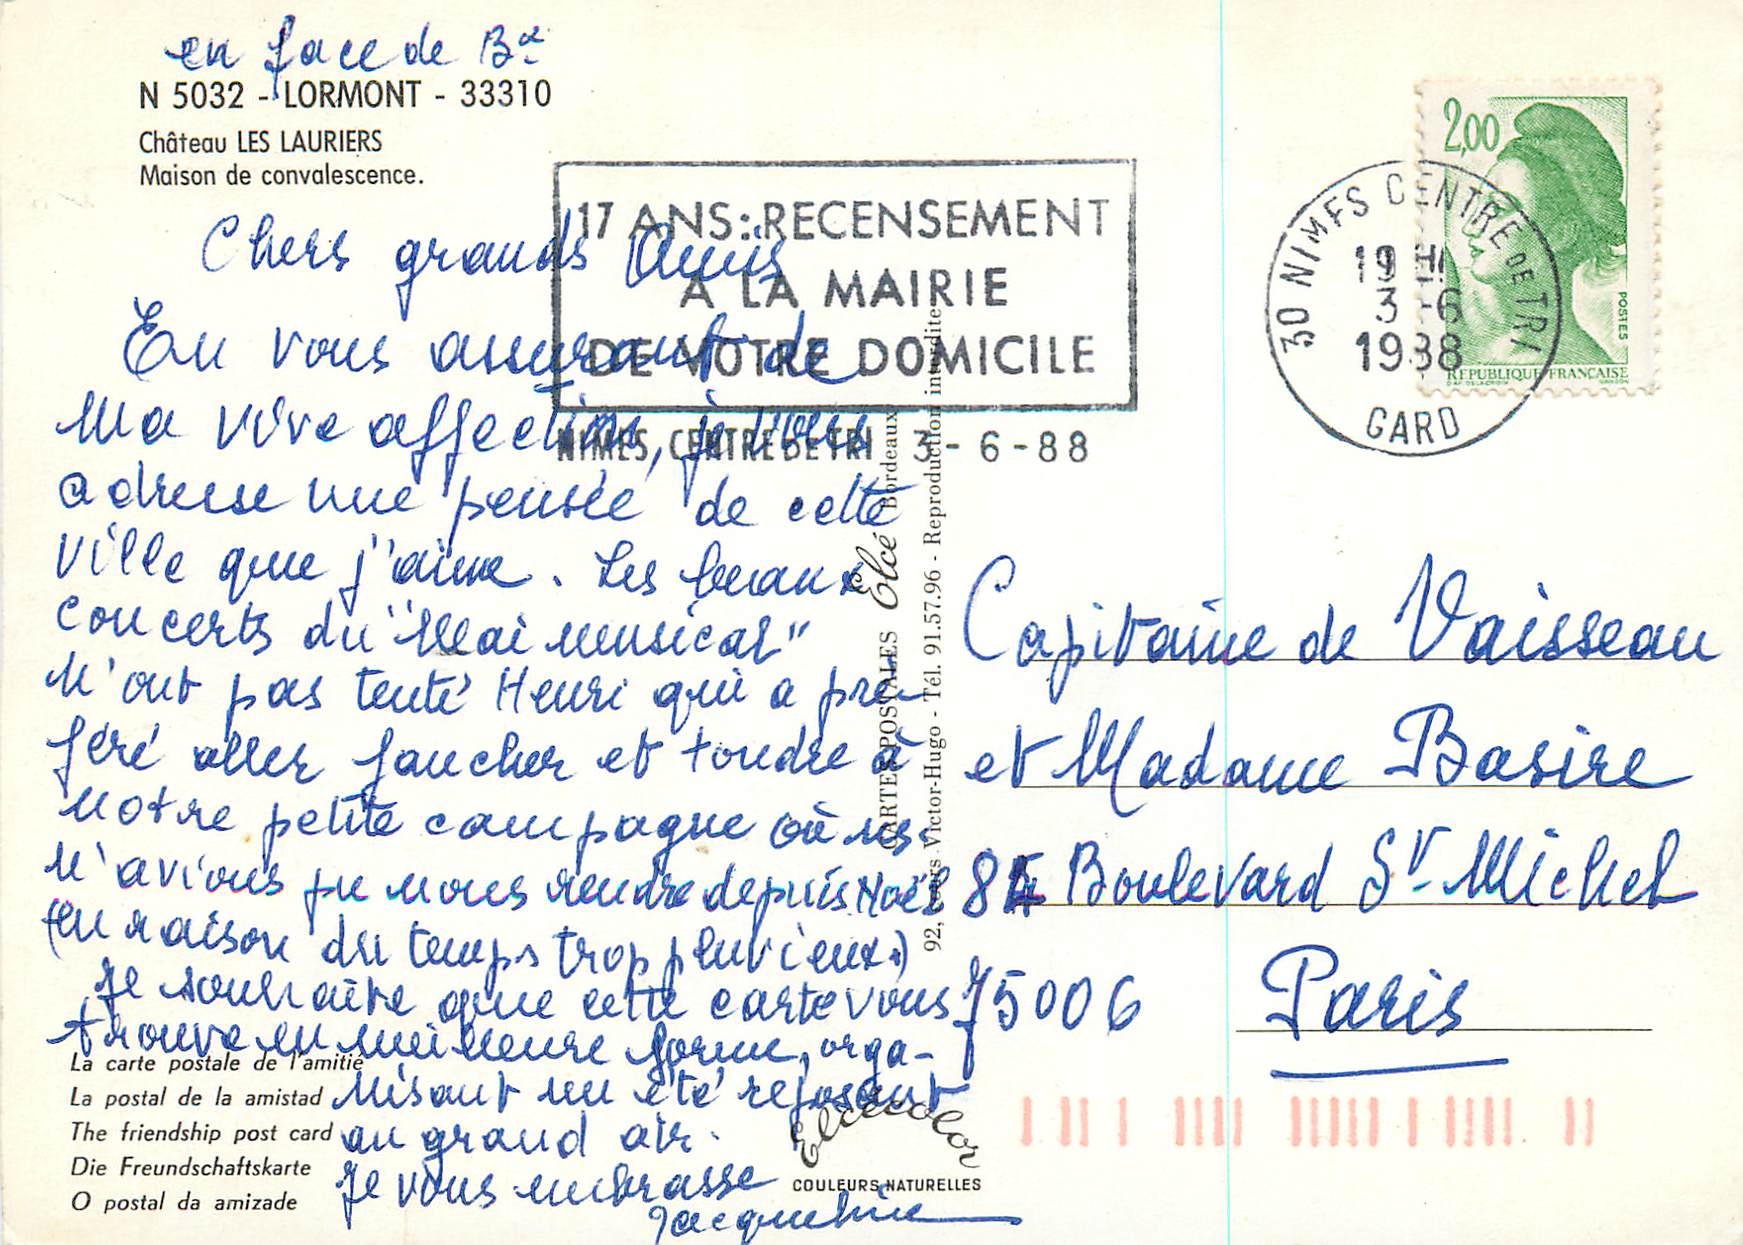 en face de Bx
N 5032 - LORMONT - 33310
Château LES LAURIERS
Maison de convalescence.
17 ANS: RECENSEMENT
A LA MAIRIE
DE VOTRE DOMICILE
NIMES, CENTRE DE TRI 3 - 6 - 88
2,00
POSTES
REPUBLIQUE FRANÇAISE
30 NIMES CENTRE DE TRI
19 H
3 - 6
1988
GARD
Chers grands Amis
En vous assurant de
ma vive affection, je vous
adresse une pensée de cette
ville que j'aime. Les beaux
concerts du "Mai musical"
n'ont pas tenté Henri qui a pré-
féré aller faucher et tondre à
notre petite campagne où ns
n'avions pu nous rendre depuis Noël
(en raison du temps trop pluvieux.)
Je souhaite que cette carte vous
trouve en meilleure forme, orga-
nisant un été reposant
au grand air.
Je vous embrasse
Jacqueline
CARTES POSTALES Elcé Bordeaux
92, cours Victor-Hugo - Tél. 91.57.96 - Reproduction interdite
Capitaine de Vaisseau
et Madame Basire
84 Boulevard St-Michel
75006 Paris
La carte postale de l'amitié
La postal de la amistad
The friendship post card
Die Freundschaftskarte
O postal da amizade
Elcécolor
COULEURS NATURELLES